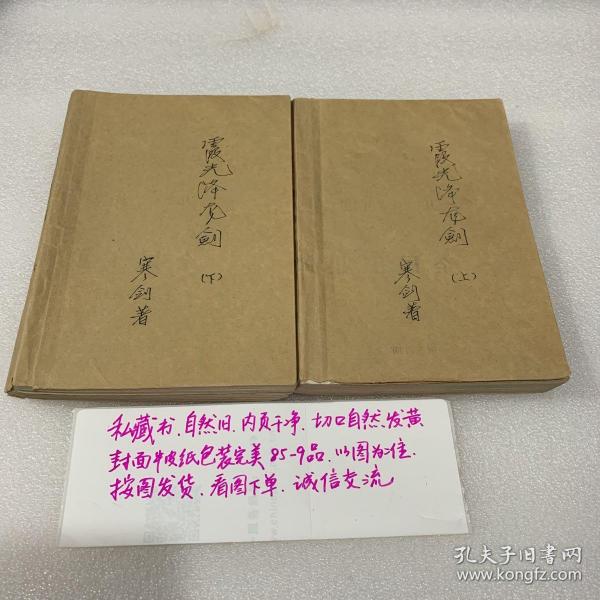 霞光降龙劍
(下)
寒剑著
霞光降龙劍
(上)
寒剑著
私藏书、自然旧、内页干净、切口自然发黄
封面牛皮纸包装完美85-9品、以图为准、
按图发货、看图下单、诚信交流
孔夫子旧书网
www.kongfz.com